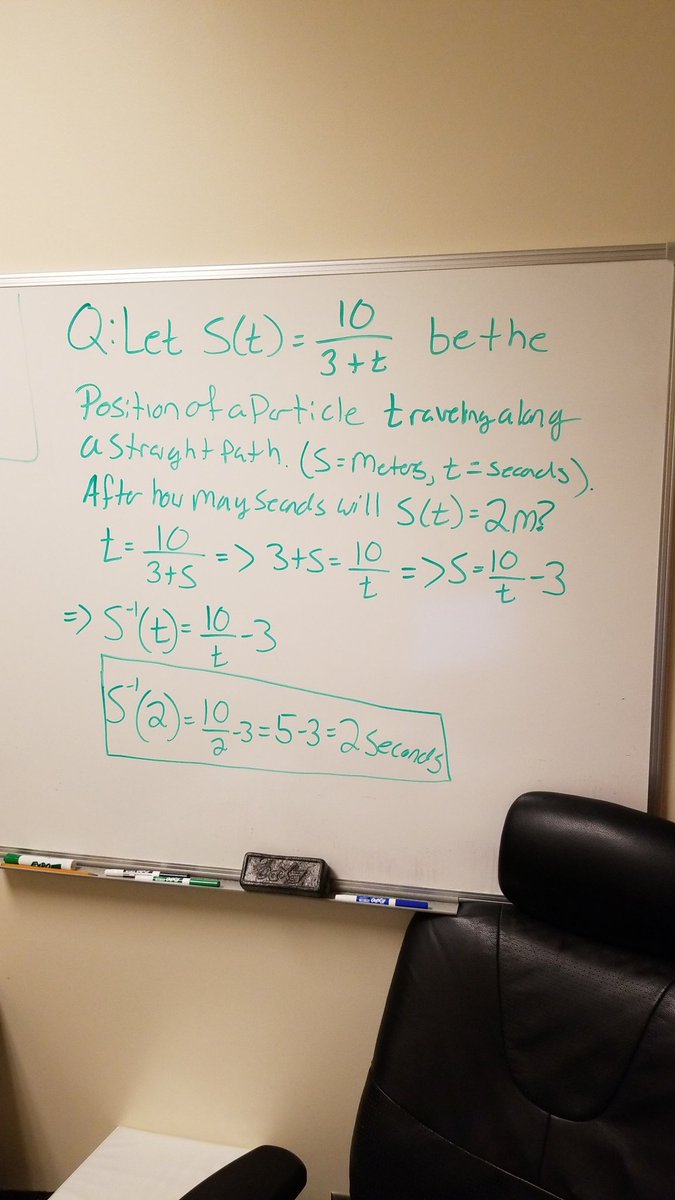 Q: Let S(t) = 10/(3+t) be the
Position of a Particle traveling along
a straight path. (S=Meters, t=seconds).
After how may seconds will S(t)=2m?
t = 10/(3+S) => 3+S = 10/t => S = 10/t - 3
=> S⁻¹(t) = 10/t - 3
S⁻¹(2) = 10/2 - 3 = 5 - 3 = 2 seconds
EXPO
EXPO